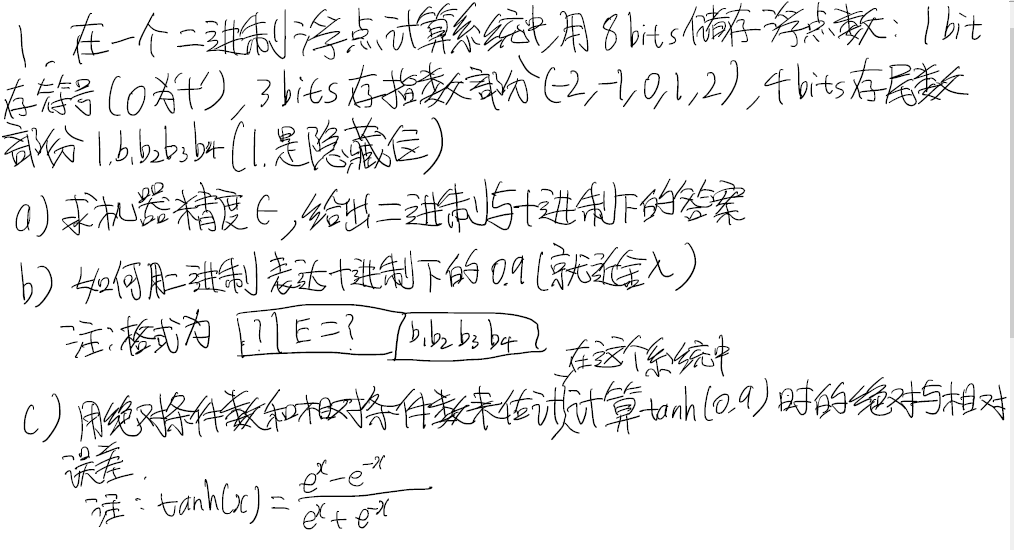 1. 在一个二进制浮点计算系统中,用8bits储存浮点数:1bit
存符号(0为'+'),3bits存指数部分(-2,-1,0,1,2),4bits存尾数
部份1.b₁b₂b₃b₄(1.是隐藏位)
a)求机器精度ϵ,给出二进制与十进制下的答案
b)如何用二进制表达十进制下的0.9(就近舍入)
注:格式为 ? E=? b₁b₂b₃b₄
在这个系统中
c)用绝对条件数和相对条件数来估计计算tanh(0.9)时的绝对与相对
误差.
注:tanh(x)=\frac{e^x-e^{-x}}{e^x+e^{-x}}